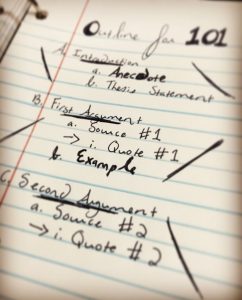 Outline for 101
A. Introduction
a. Anecdote
b. Thesis Statement
B. First Argument
a. Source #1
→ i. Quote #1
b. Example
C. Second Argument
a. Source #2
→ i. Quote #2